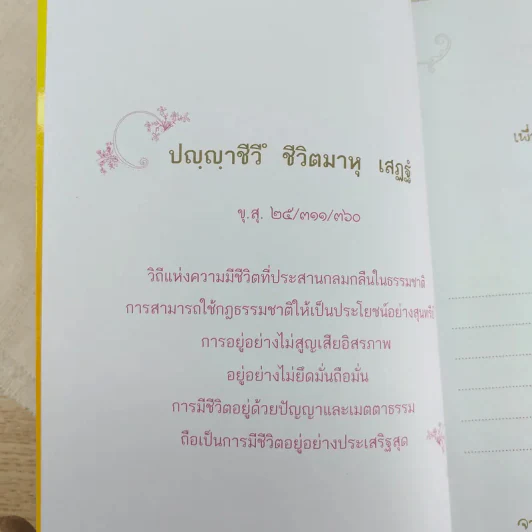 ปญฺญาชีวึ ชีวิตมาหุ เสฏฺฐํ
ขุ.สุ. ๒๕/๓๑๑/๓๖๐
วิถีแห่งความมีชีวิตที่ประสานกลมกลืนในธรรมชาติ
การสามารถใช้กฎธรรมชาติให้เป็นประโยชน์อย่างสุนทรีย์
การอยู่อย่างไม่สูญเสียอิสรภาพ
อยู่อย่างไม่ยึดมั่นถือมั่น
การมีชีวิตอยู่ด้วยปัญญาและเมตตาธรรม
ถือเป็นการมีชีวิตอยู่อย่างประเสริฐสุด